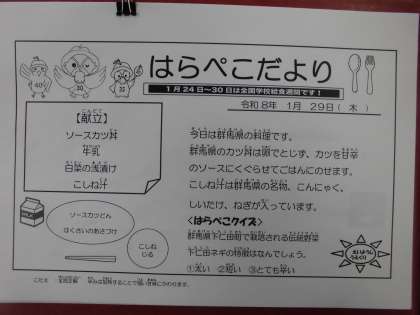 はらぺこだより
1月24日～30日は全国学校給食週間です！
令和8年 1月 29日（木）
【献立】
ソースカツ丼
牛乳
白菜の浅漬け
こしね汁
今日は群馬県の料理です。
群馬県のカツ丼は卵でとじず、カツを甘辛
のソースにくぐらせてごはんにのせます。
こしね汁は群馬県の名物、こんにゃく、
しいたけ、ねぎが入っています。
<はらぺこクイズ>
群馬県下仁田町で栽培される伝統野菜
下仁田ネギの特徴はなんでしょう。
①太い ②短い ③とても辛い
ソースカツどん
はくさいのあさづけ
こしね
じる